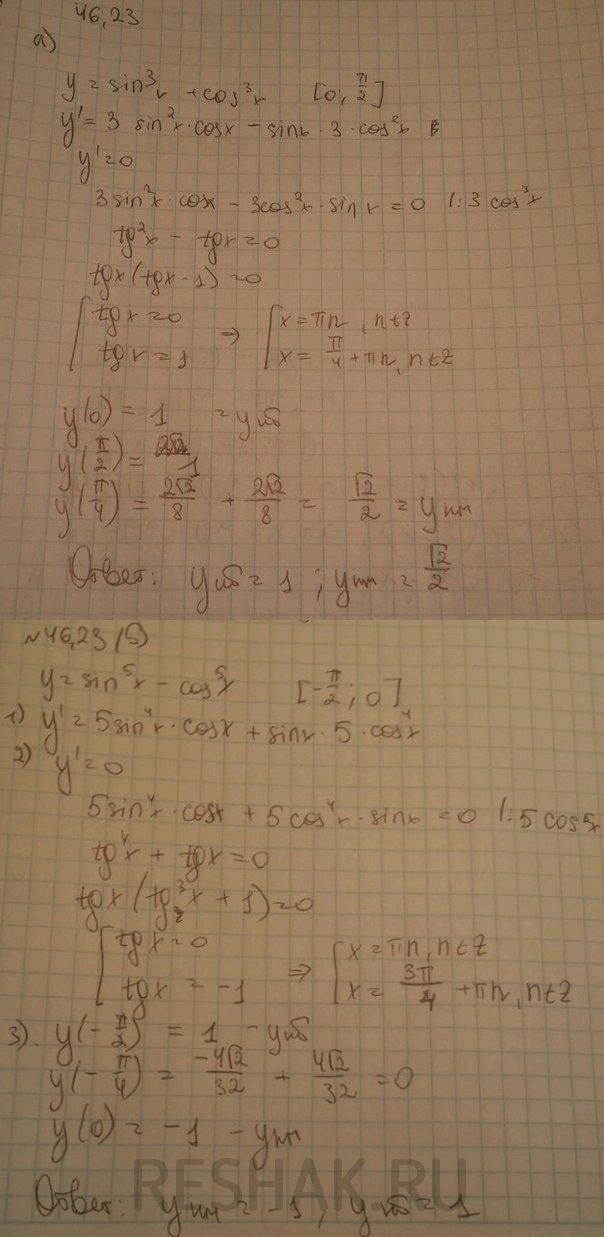 46,23
а)
y = sin³x + cos³x [0; π/2]
y' = 3 sin²x·cosx − sinx·3·cos²x
y'=0
3sin²x·cosx − 3cos²x·sinx = 0 |:3cos³x
tg²x − tgx = 0
tgx(tgx − 1) = 0
[tgx = 0 ⇒ [x = πn, n∈Z
[tgx = 1 [x = π/4 + πn, n∈Z
y(0) = 1 = yнб
y(π/2) = 1
y(π/4) = 2√2/8 + 2√2/8 = √2/2 = yнм
Ответ: yнб = 1; yнм = √2/2
№46,23 (б)
y = sin⁵x − cos⁵x [-π/2; 0]
1) y' = 5sin⁴x·cosx + sinx·5·cos⁴x
2) y'=0
5sin⁴x·cosx + 5cos⁴x·sinx = 0 |:5cos5x
tg⁴x + tgx = 0
tgx(tg³x + 1) = 0
[tgx = 0 ⇒ [x = πn, n∈Z
[tgx = −1 [x = 3π/4 + πn, n∈Z
3) y(−π/2) = 1 − yнб
y(−π/4) = −4√2/32 + 4√2/32 = 0
y(0) = −1 − yнм
Ответ: yнм = −1; yнб = 1
RESHAK.RU